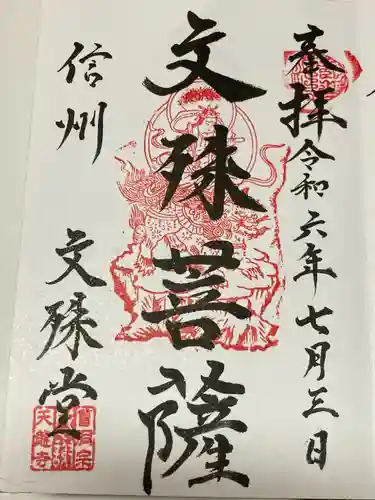 奉拝
令和六年七月三日
文殊菩薩
信州
文殊堂